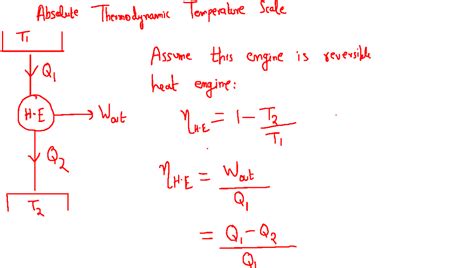 Absolute Thermodynamic Temperature Scale
T₁
Q₁
H·E → Wout
Q₂
T₂
Assume this engine is reversible
heat engine:
η_H·E = 1 - T₂/T₁
η_H·E = Wout/Q₁
= Q₁-Q₂/Q₁